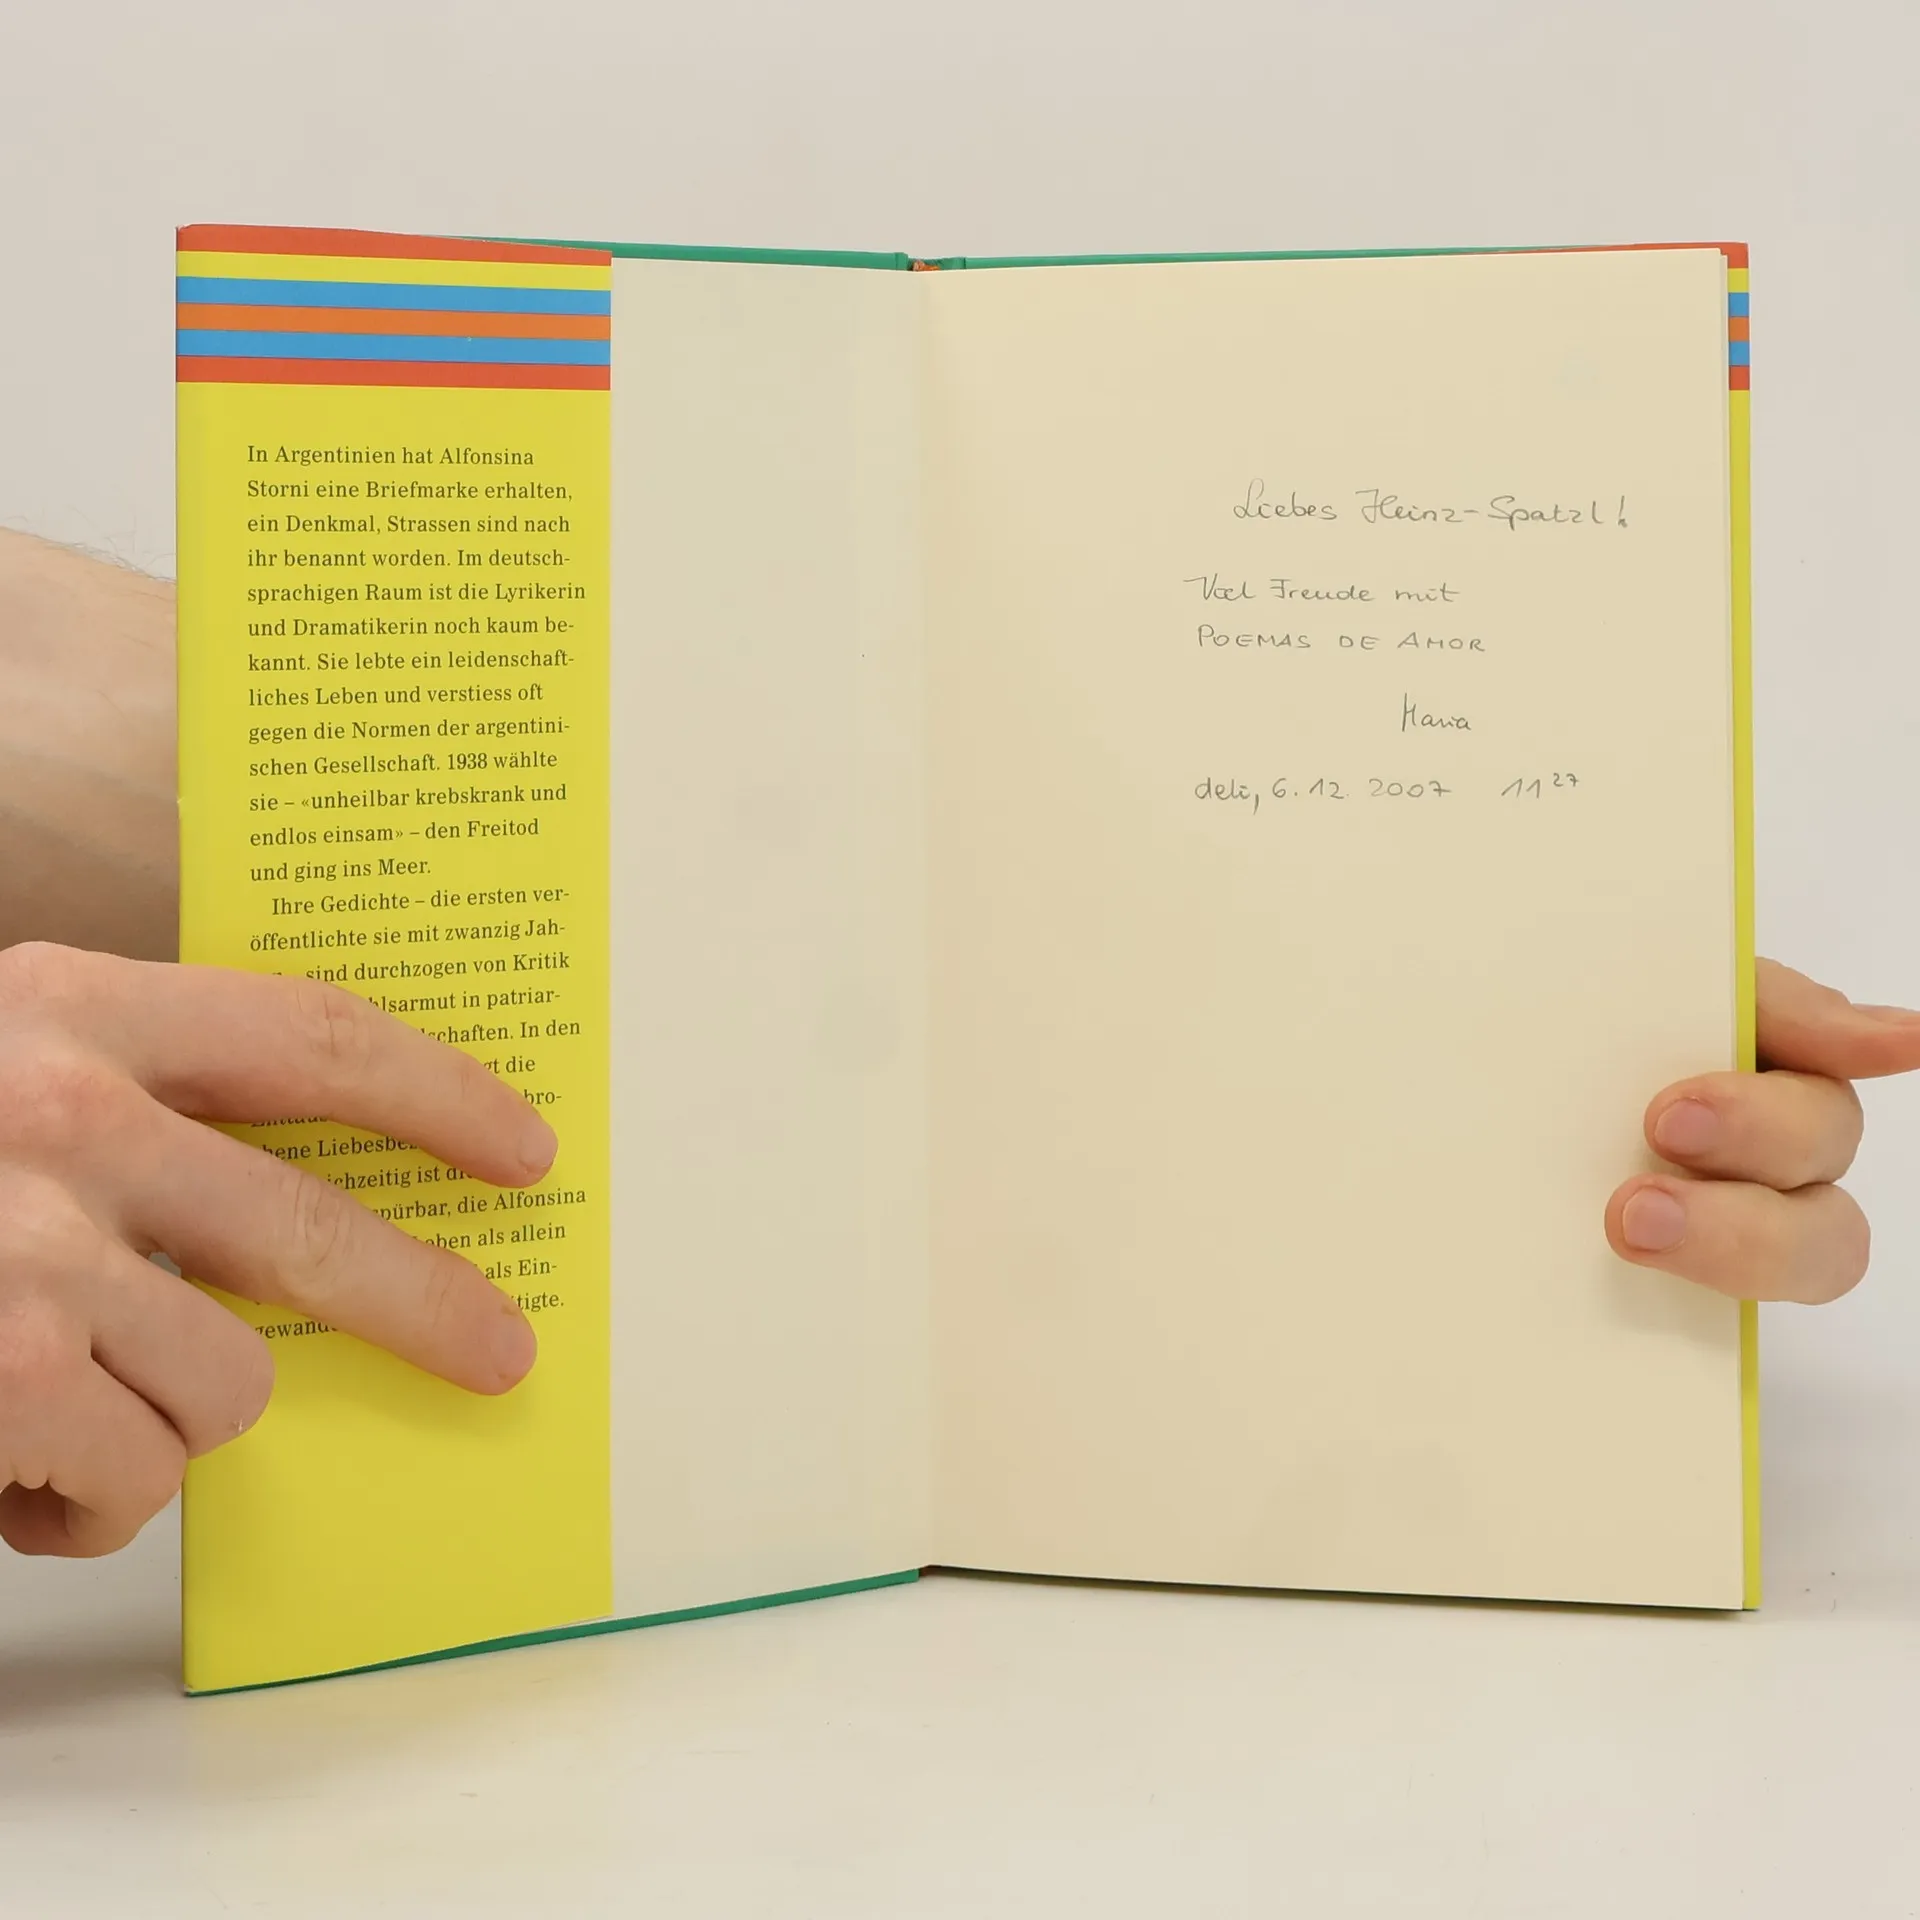 In Argentinien hat Alfonsina
Storni eine Briefmarke erhalten,
ein Denkmal, Strassen sind nach
ihr benannt worden. Im deutsch-
sprachigen Raum ist die Lyrikerin
und Dramatikerin noch kaum be-
kannt. Sie lebte ein leidenschaft-
liches Leben und verstiess oft
gegen die Normen der argentini-
schen Gesellschaft. 1938 wählte
sie – «unheilbar krebskrank und
endlos einsam» – den Freitod
und ging ins Meer.
Ihre Gedichte – die ersten ver-
öffentlichte sie mit zwanzig Jah-
sind durchzogen von Kritik
in patriar-
In den
die
Alfonsina
als allein
als Ein-
Liebes Heinz-Spatzl!
Viel Freude mit
POEMAS DE AMOR
Maria
deli, 6.12.2007 11 27